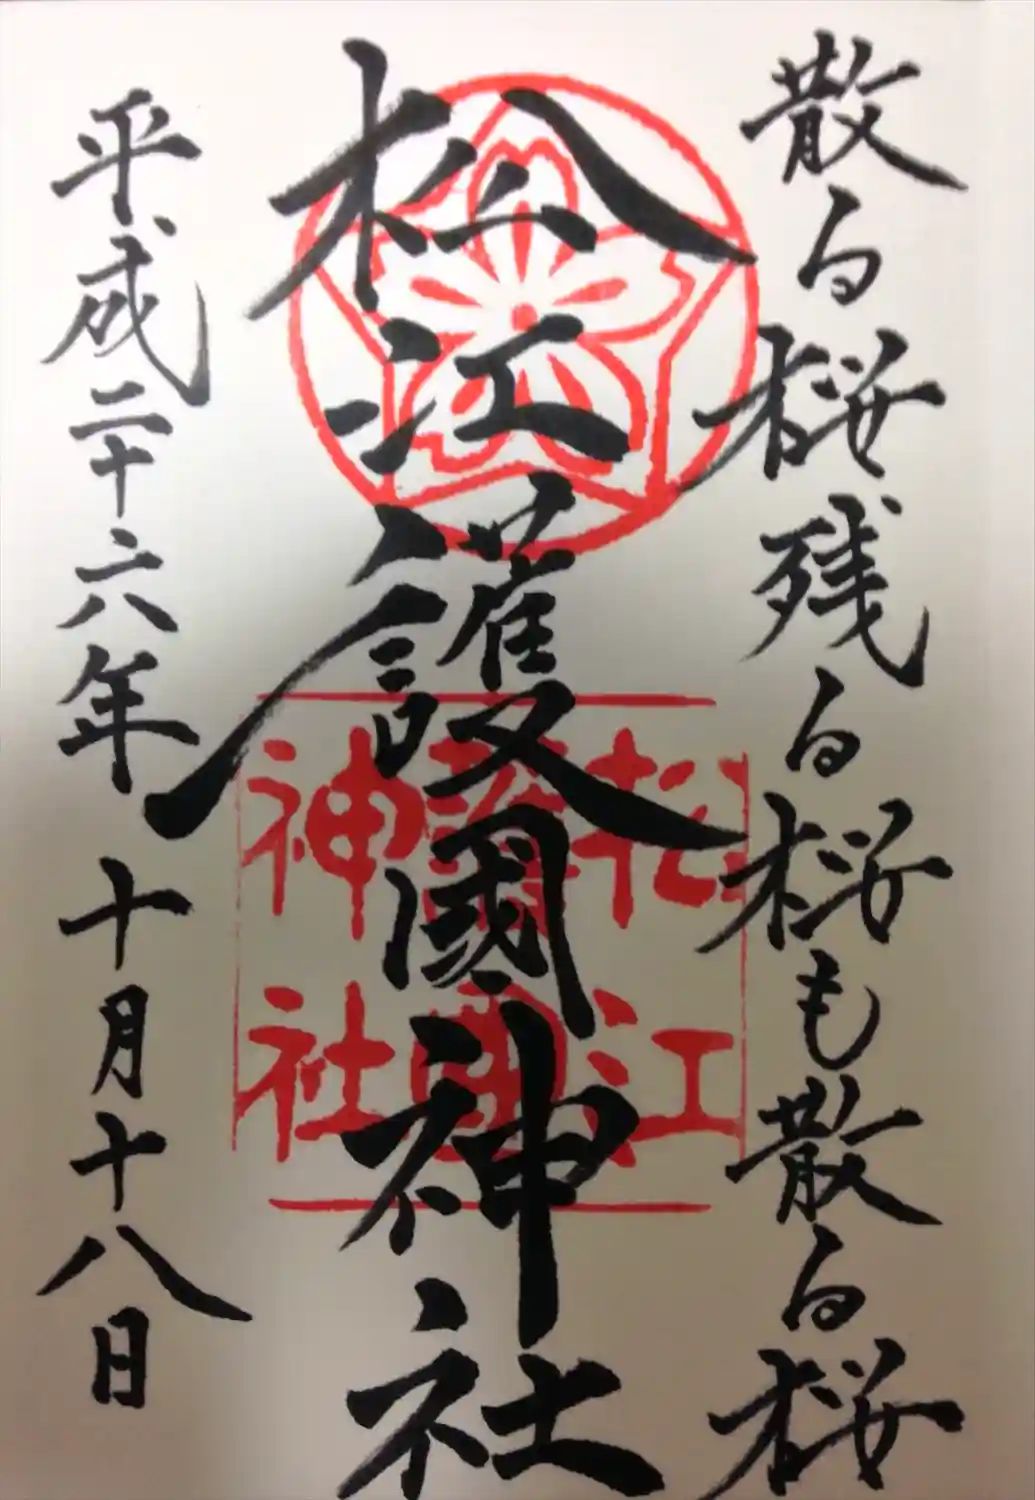 散る桜残る桜も散る桜
松江護國神社
松江
護國
神社
平成二十六年十月十八日